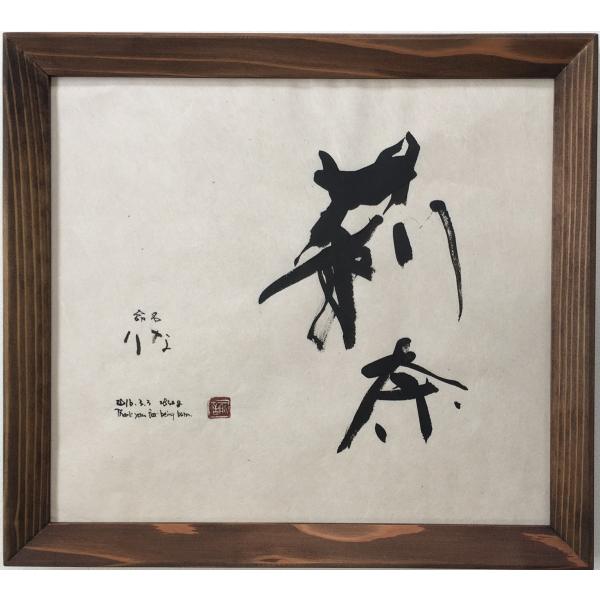 莉奈
命名
りな
2016.3.3 2820g
Thank you for being born.